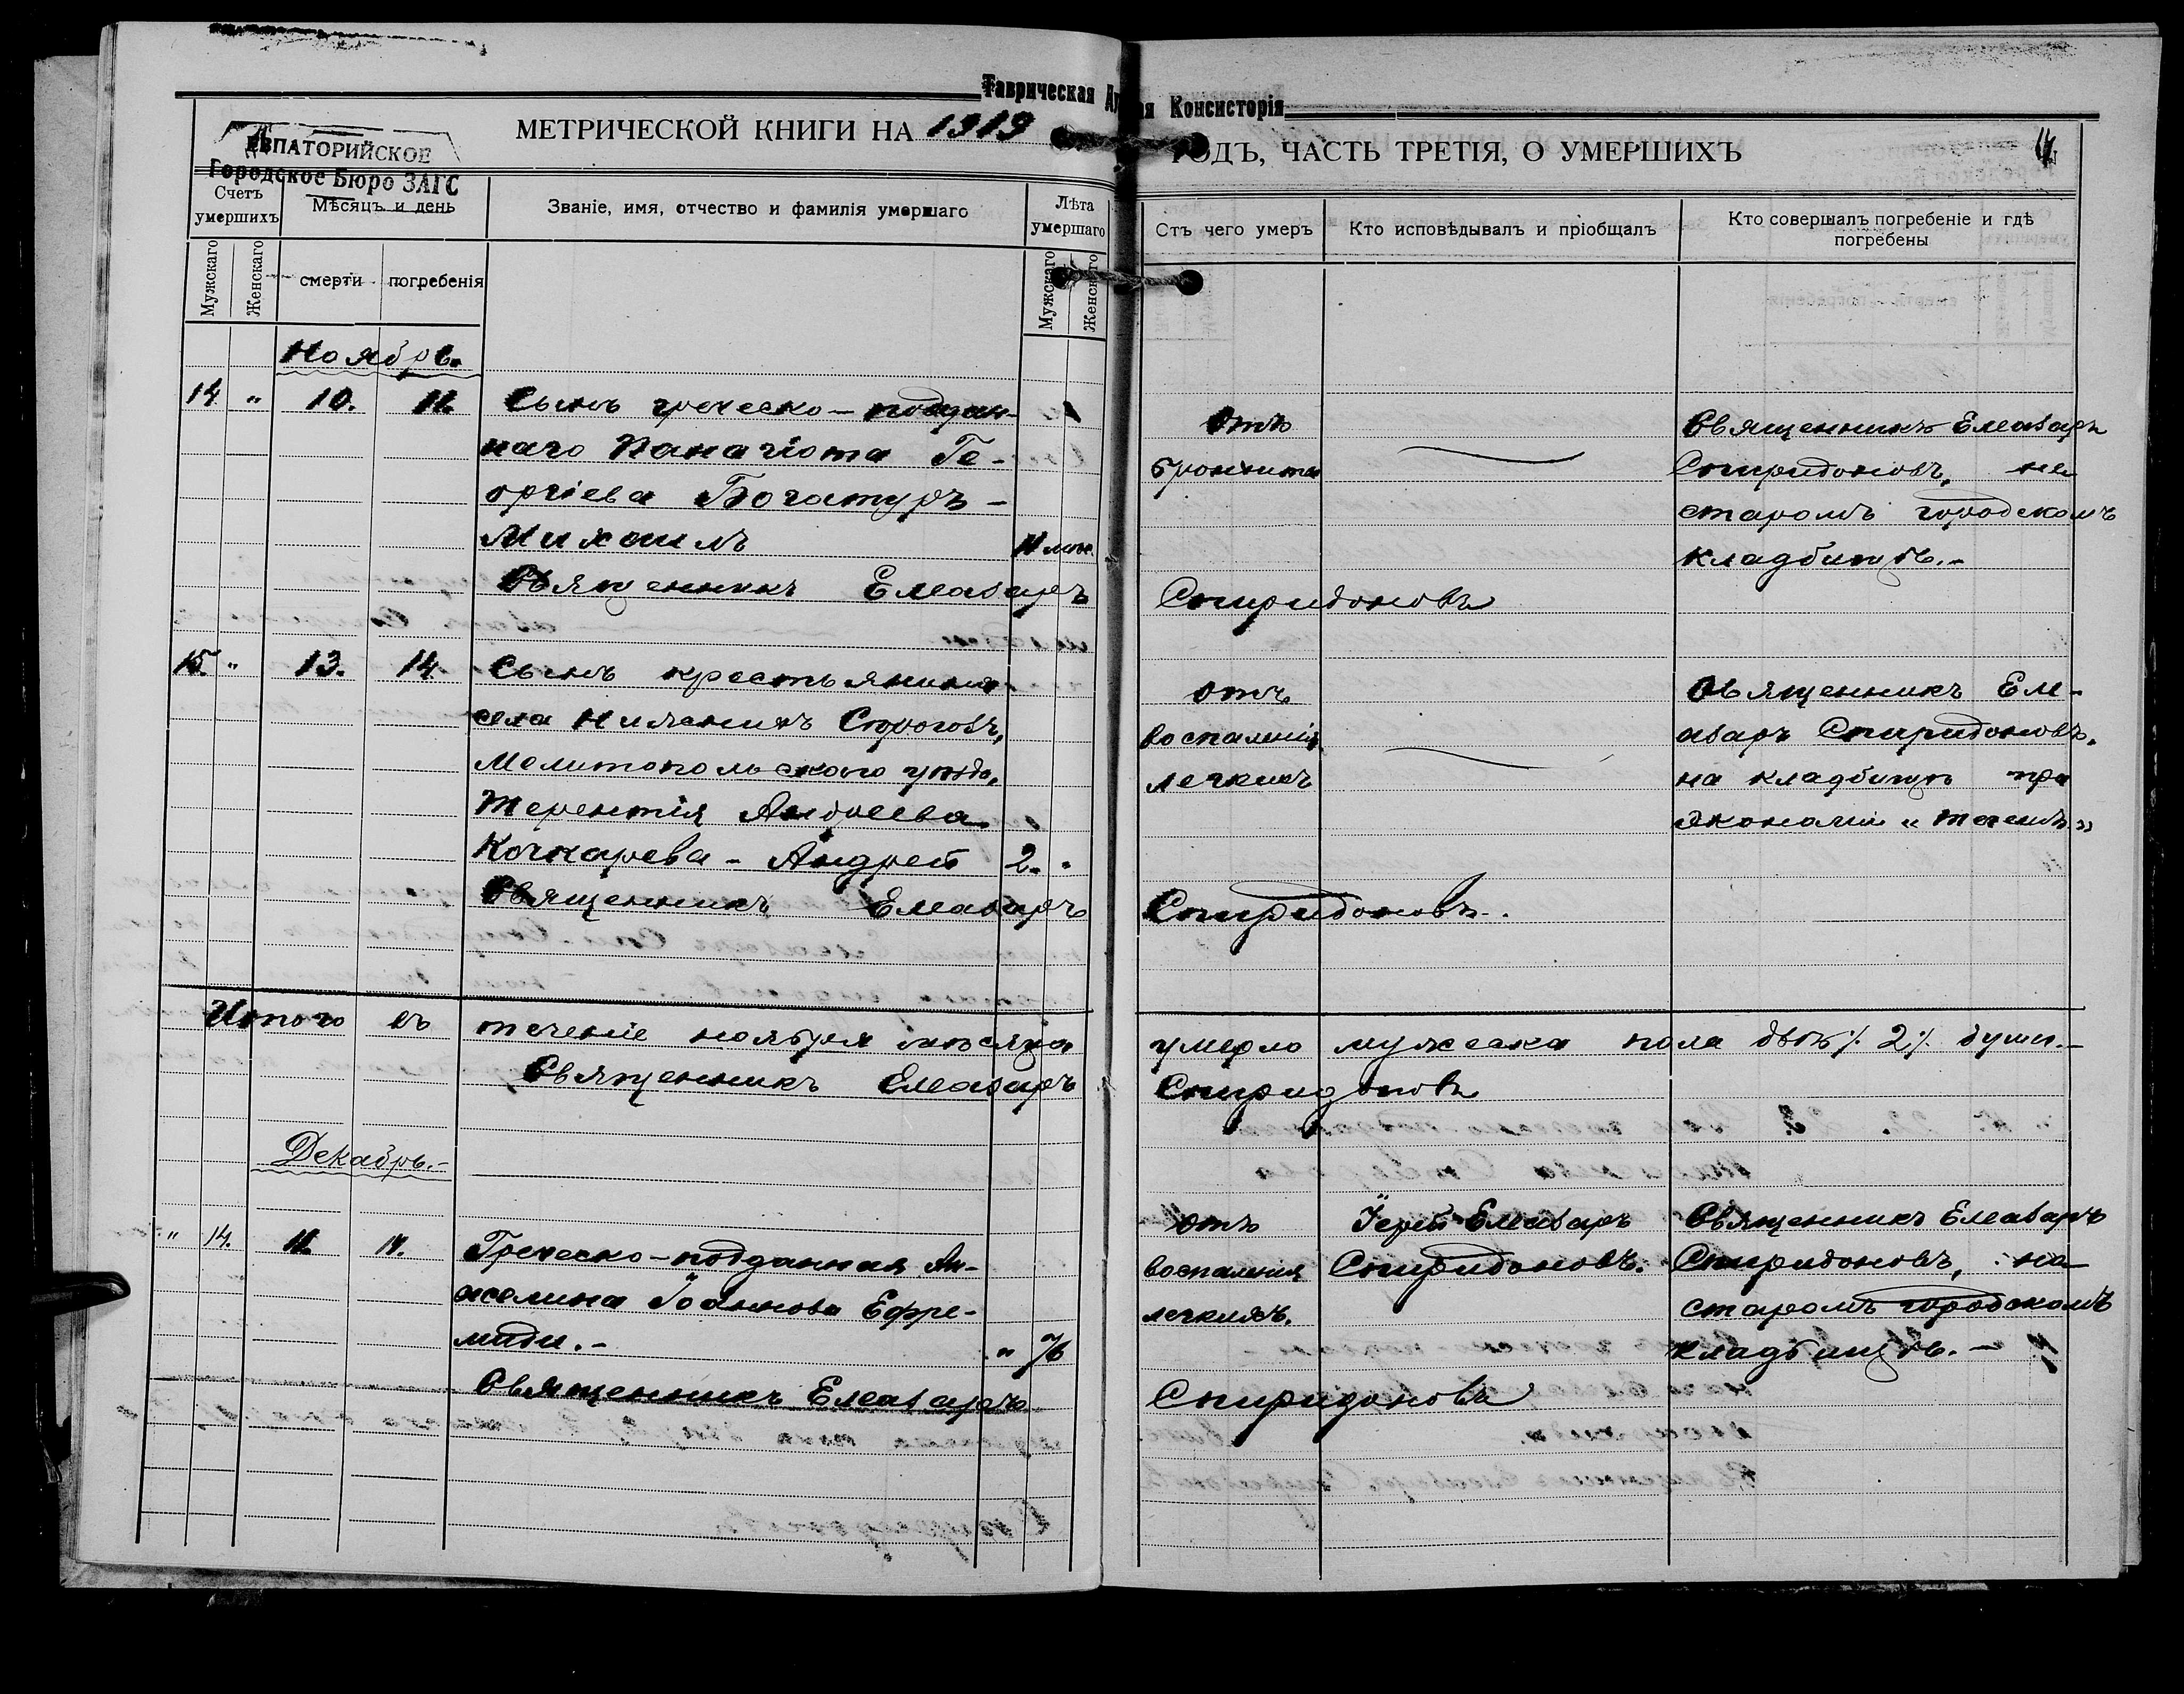 Таврическая
ая Консисторія
МЕТРИЧЕСКОЙ КНИГИ НА 1919
ГОДЪ, ЧАСТЬ ТРЕТІЯ, О УМЕРШИХЪ
ЕВПАТОРИЙСКОЕ
Городское Бюро ЗАГС
Счетъ умершихъ
Мѣсяцъ и день
Званіе, имя, отчество и фамилія умершаго
Лѣта умершаго
Отъ чего умеръ
Кто исповѣдывалъ и пріобщалъ
Кто совершалъ погребеніе и гдѣ погребены
Мужскаго
Женскаго
смерти
погребенія
Мужскаго
Женскаго
Ноябрь.
14 " 10. 11. Сынъ греческо-поддан-
наго Панагіота Ге-
оргіева Богатуръ -
Михаилъ 11 мѣс.
Отъ
бронхита
Священникъ Елеазаръ
Спиридоновъ, на
старомъ городскомъ
кладбищѣ.-
Священникъ Елеазаръ Спиридоновъ
15. " 13. 14. Сынъ крестьянина
села Нижнихъ Сѣрогозъ,
Мелитопольскаго уѣзда,
Терентія Андреева
Кочкарева - Андрей 2. "
отъ
воспаленія
легкихъ
Священникъ Еле-
азаръ Спиридоновъ,
на кладбищѣ при
экономіи
Священникъ Елеазаръ Спиридоновъ.
Итого въ теченіе ноября мѣсяца умерло мужеска пола двѣ ٪ 2 ٪ души.-
Священникъ Елеазаръ Спиридоновъ
Декабрь.-
" 14. 11. Греческо-подданная Ан-
желина Іоаннова Ефре-
миди.- " 76
отъ
воспаленія
легкихъ.
Іерей Елеазаръ
Спиридоновъ.
Священникъ Елеазаръ
Спиридоновъ, на
старомъ городскомъ
кладбищѣ. -
Священникъ Елеазаръ Спиридоновъ